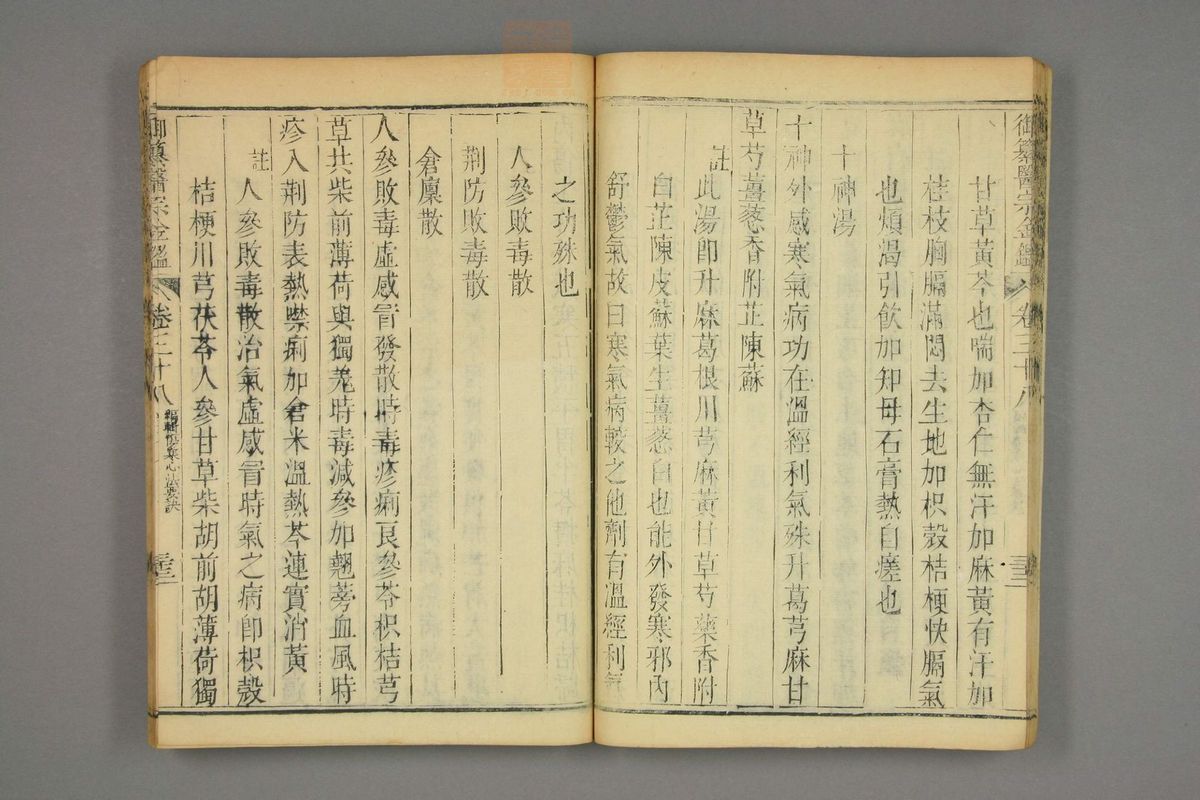 御纂醫宗金鑑 卷三十八
甘草黃芩也喘加杏仁無汗加麻黃有汗加
桂枝胸膈滿悶去生地加枳殼桔梗快膈氣
也煩渴引飲加知母石膏熱自瘥也
十神湯
十神外感寒氣病功在溫經利氣殊升葛芎麻甘
草芍薑蔥香附芷陳蘇
註
此湯卽升麻葛根川芎麻黃甘草芍藥香附
白芷陳皮蘇葉生薑蔥白也能外發寒邪內
舒鬱氣故曰寒氣病較之他劑有溫經利氣
之功殊也
人參敗毒散
荆防敗毒散
倉廩散
人參敗毒虛感冒發散時毒疹痢良參苓枳桔芎
草共柴前薄荷與獨羌時毒減參加翹蒡血風時
疹入荆防表熱噤痢加倉米溫熱芩連實消黃
註人參敗毒散治氣虛感冒時氣之病卽枳殼
桔梗川芎茯苓人參甘草柴胡前胡薄荷獨
御纂醫宗金鑑 卷三十八 編輯傷寒心法要訣